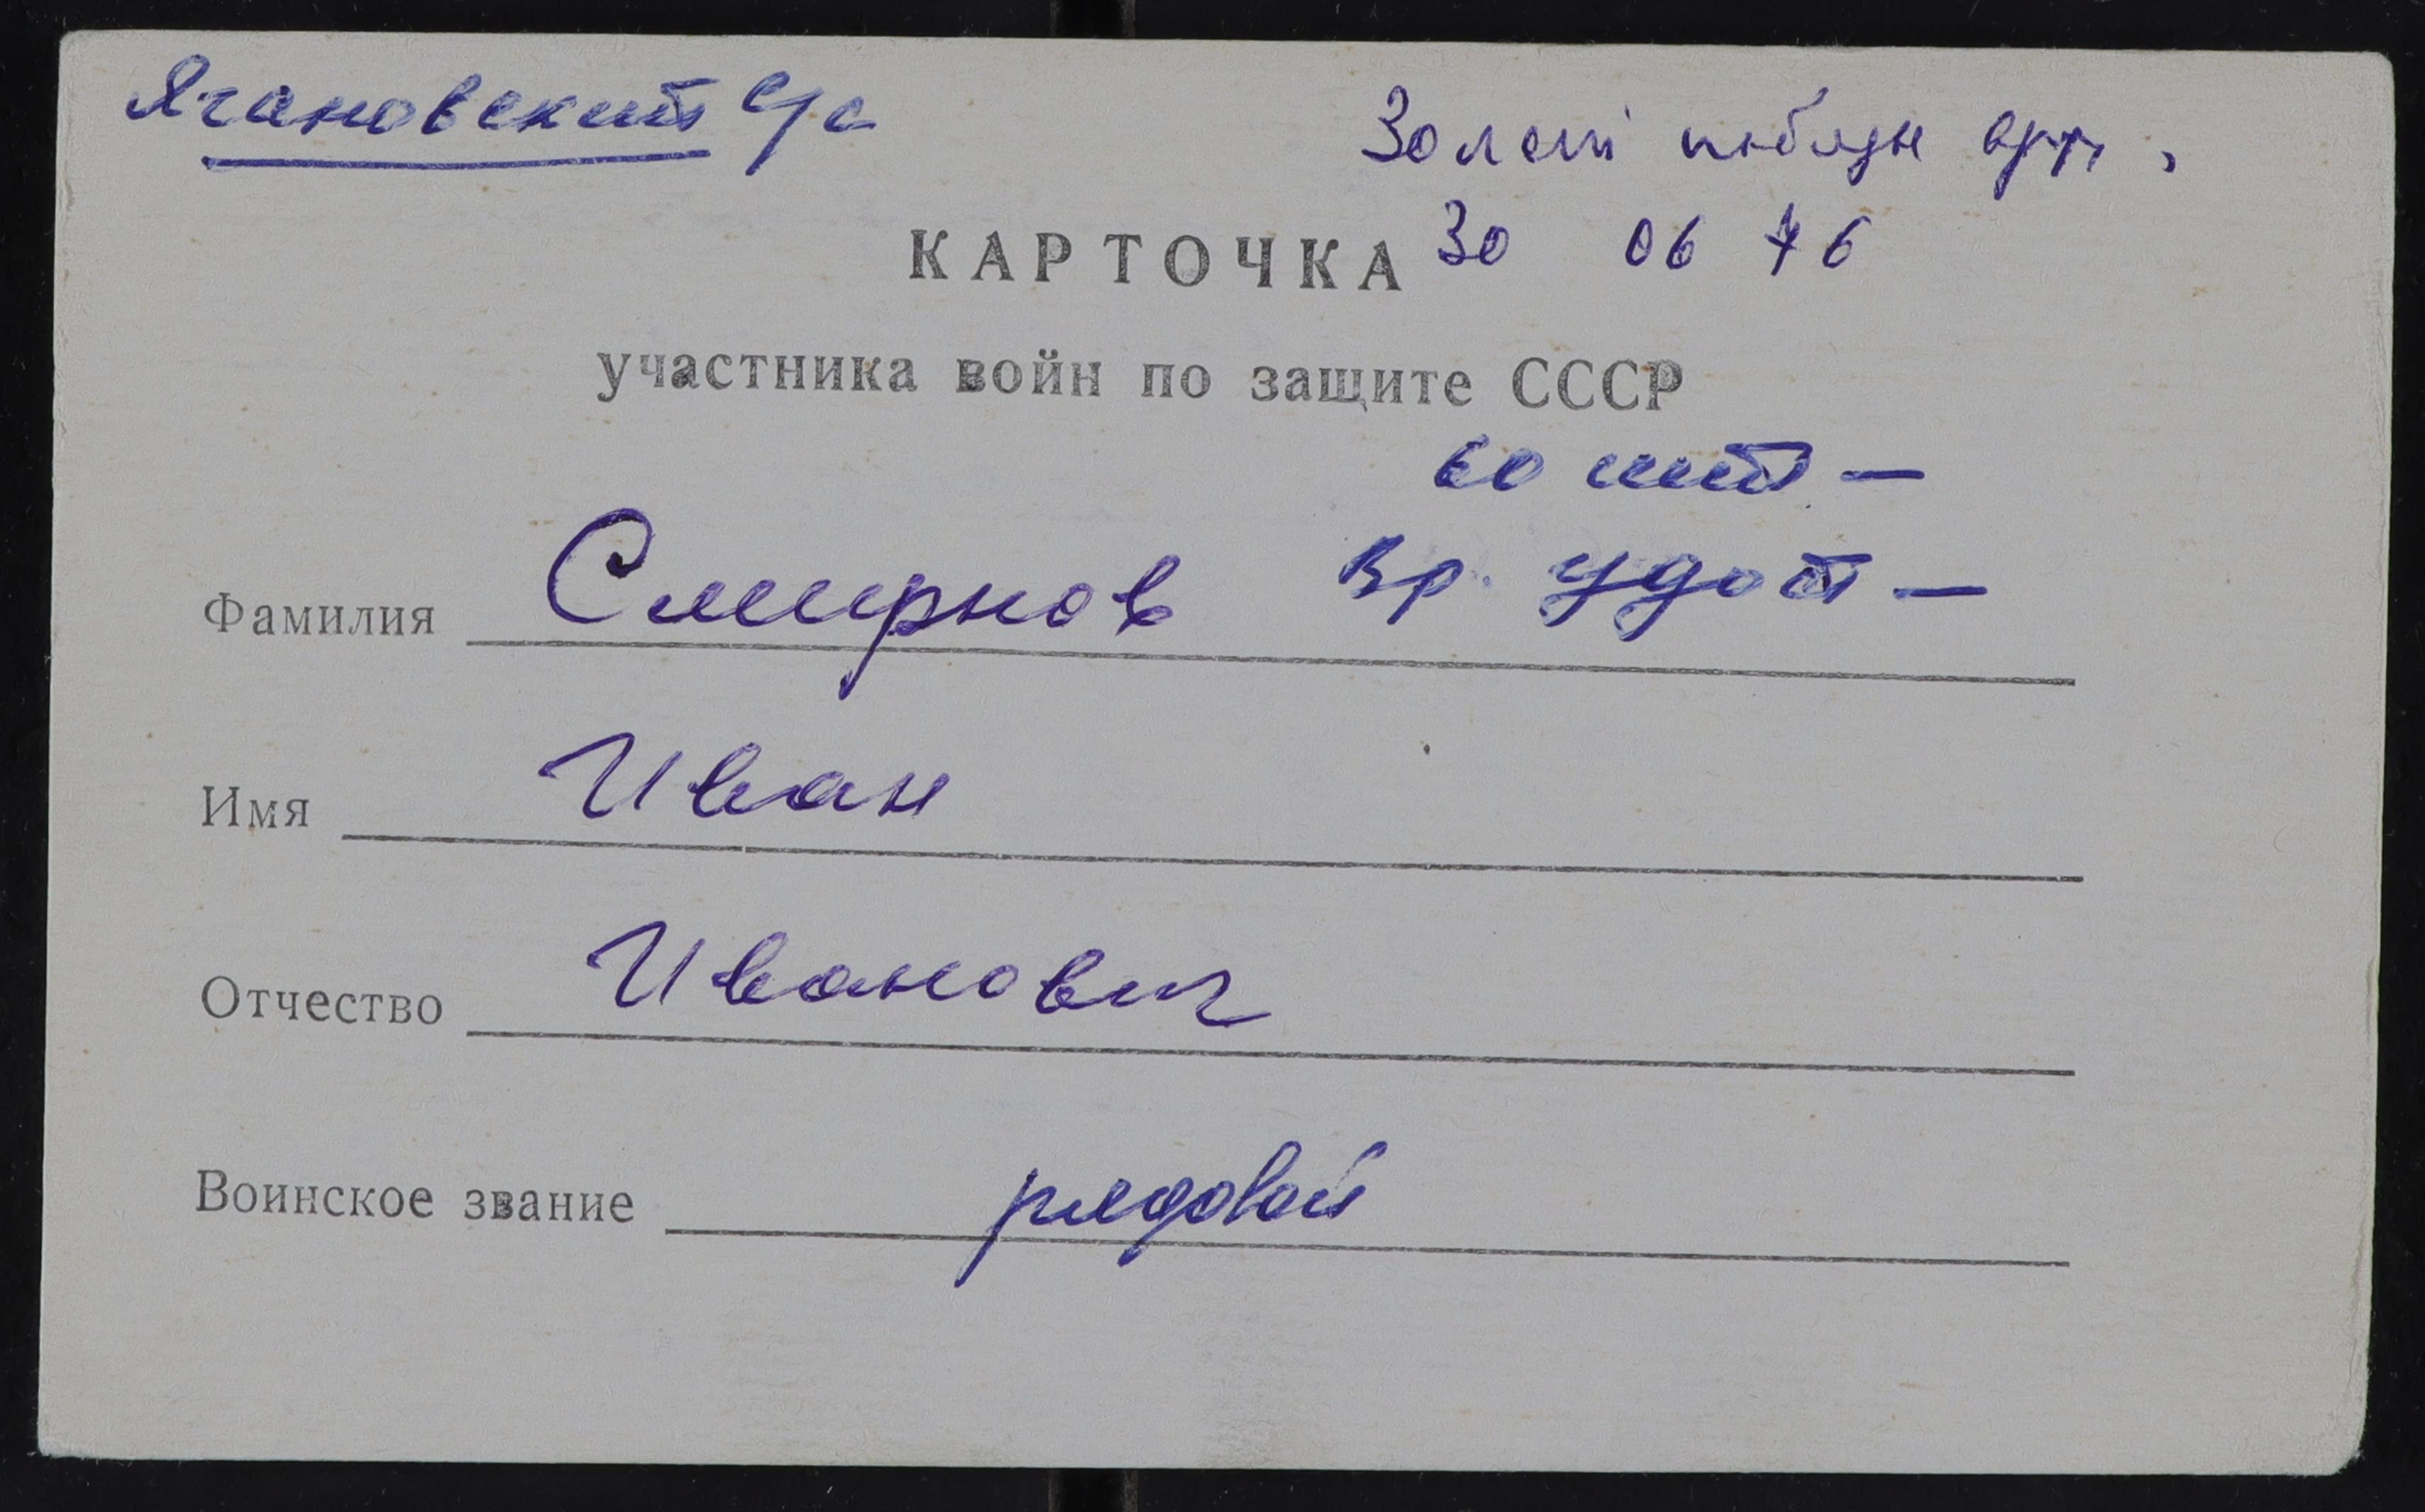 Ягановский с/с
30 лет победы
КАРТОЧКА 30 06 76
участника войн по защите СССР
60 лет —
Фамилия Смирнов Вр. удост —
Имя Иван
Отчество Иванович
Воинское звание рядовой